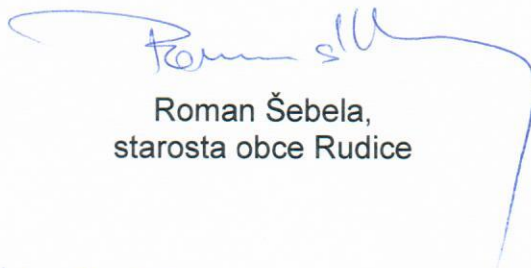 Roman Šebela,
starosta obce Rudice